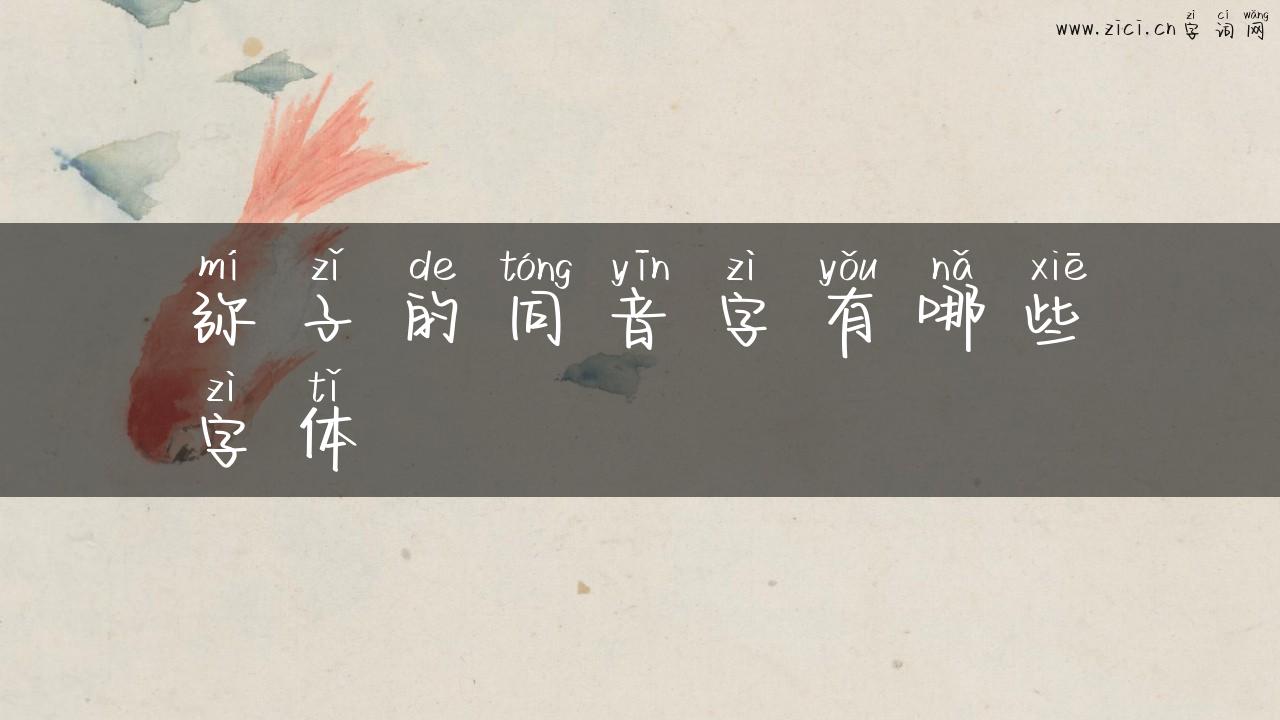 zì cí wǎng
www.zici.cn 字 词 网
mí zǐ de tóng yīn zì yǒu nǎ xiē
弥 子 的 同 音 字 有 哪 些
zì tǐ
字 体